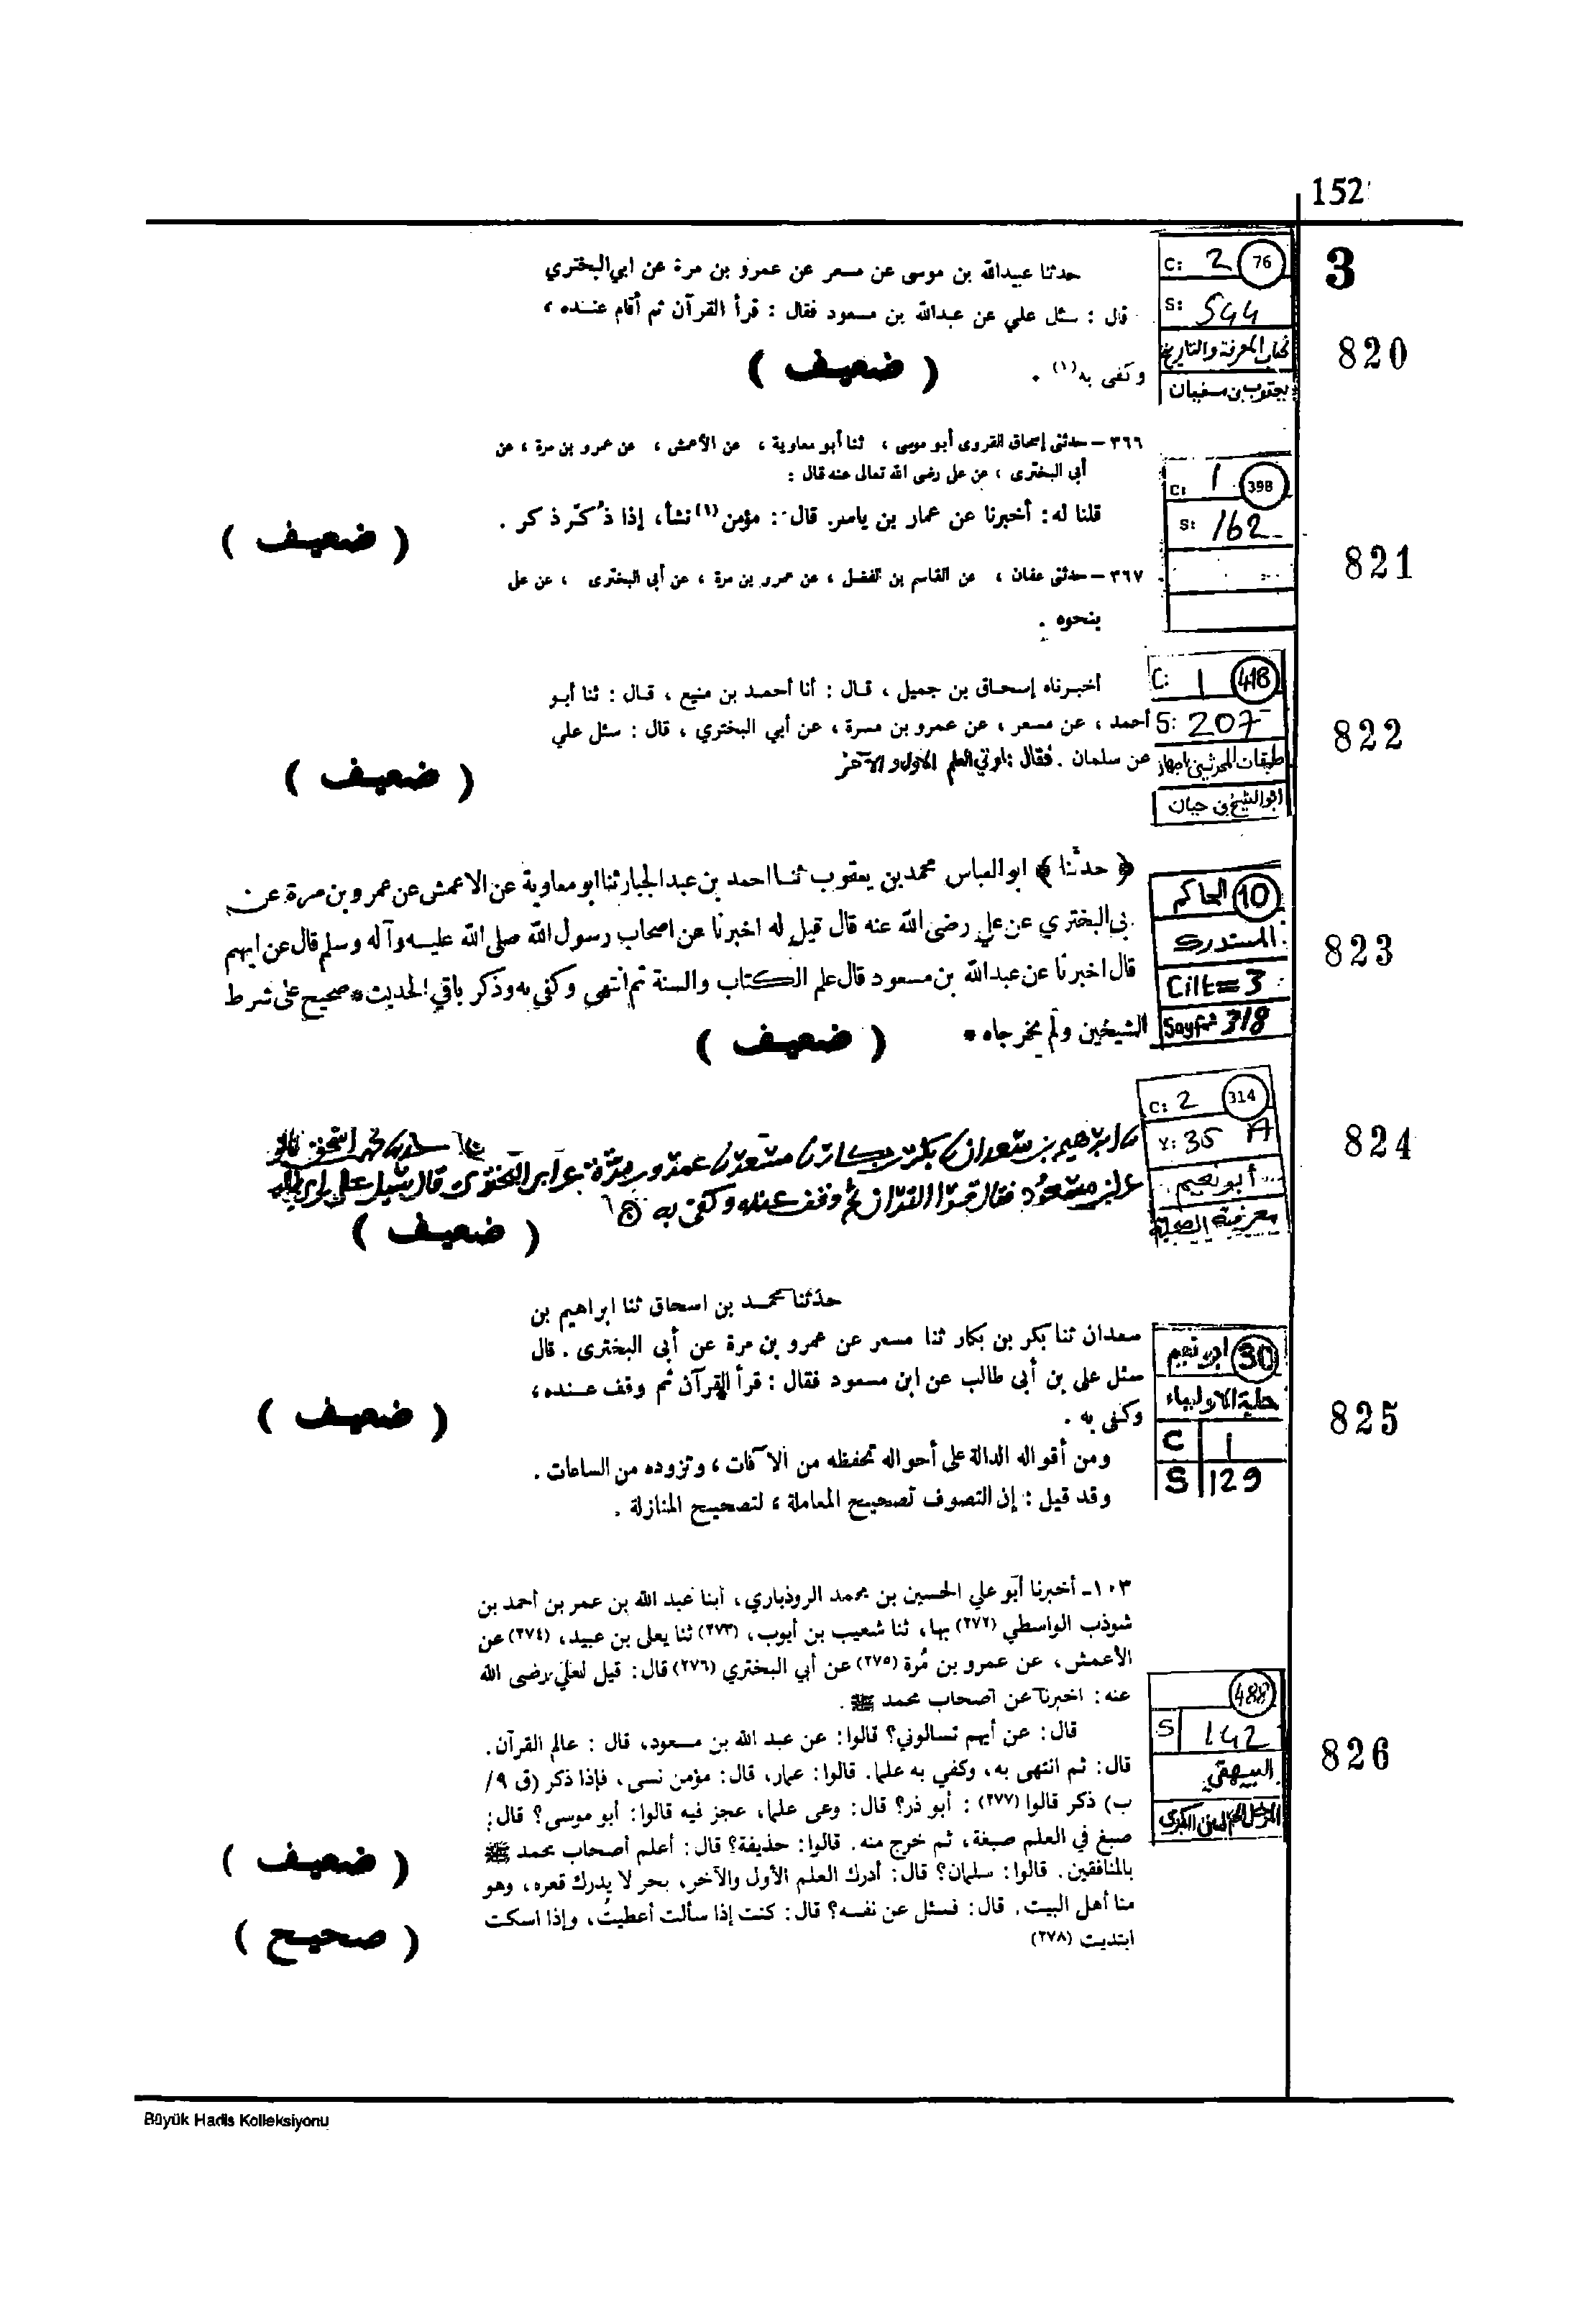 152
3
C: 2 76
S: 544
كتاب المعرفة والتاريخ
يعقوب بن سفيان
820
حدثنا عبيدالله بن موسى عن مسعر عن عمرو بن مرة عن ابي البختري
قال : سئل علي عن عبدالله بن مسعود فقال : قرأ القرآن ثم أقام عنده ،
وكفى به (١) .
( ضعيف )
C: 1 398
S: 162
821
٣٦٦ – حدثني إسحاق الفروى أبو موسى ، ثنا أبو معاوية ، عن الأعمش ، عن عمرو بن مرة ، عن
أبي البخترى ، عن على رضى الله تعالى عنه قال :
قلنا له : أخبرنا عن عمار بن ياسر. قال : مؤمن (١) نشأ، إذا ذُكّر ذكر .
( ضعيف )
٣٦٧ – حدثني عفان ، عن القاسم بن الفضل ، عن عمرو بن مرة ، عن أبي البخترى ، عن على
بنحوه .
C: 1 418
S: 207
طبقات المحدثين
ابو الشيخ بن حيان
822
أخبرناه إسحاق بن جميل ، قال : أنا أحمد بن منيع ، قال : ثنا أبو
أحمد ، عن مسعر ، عن عمرو بن مسرة ، عن أبي البختري ، قال : سئل علي
عن سلمان . فقال : اوتي العلم الاول والآخر
( ضعيف )
10 الحاكم
المستدرك
Cilt=3
Sayf 318
823
﴿ حدثنا ﴾ ابو العباس محمد بن يعقوب ثنا احمد بن عبد الجبار ثنا ابو معاوية عن الاعمش عن عمرو بن مرة عن
بي البختري عن علي رضى الله عنه قال قيل له اخبرنا عن اصحاب رسول الله صلى الله عليه وآله وسلم قال عن ايهم
قال اخبرنا عن عبدالله بن مسعود قال علم الكتاب والسنة ثم انتهى وكفى به وذكر باقي الحديث * صحيح على شرط
الشيخين ولم يخرجاه *
( ضعيف )
C: 2 314
V: 35 A
أبو نعيم
معرفة الصحابة
824
ابراهيم بن سعدان بكر بن بكار مسعر عمرو بن مرة عن ابي البختري قال سئل علي
عن ابن مسعود فقال قرا القران ثم وقف عنده وكفى به
( ضعيف )
30 ابو نعيم
حلية الاولياء
C 1
S 129
825
حدثنا محمد بن اسحاق ثنا ابراهيم بن
سعدان ثنا بكر بن بكار ثنا مسعر عن عمرو بن مرة عن أبى البخترى . قال
سئل على بن أبى طالب عن ابن مسعود فقال : قرأ القرآن ثم وقف عنده ،
وكفى به .
( ضعيف )
ومن أقواله الدالة على أحواله تحفظه من الآفات ، وتزوده من الساعات .
وقد قيل : إن التصوف تصحيح المعاملة ، لتصحيح المنازلة .
488
S 142
البيهقي
المدخل الى السنن الكبرى
826
١٠٣ـ أخبرنا أبو علي الحسين بن محمد الروذباري، أبنا عبد الله بن عمر بن أحمد بن
شوذب الواسطي (٢٧٢) بها، ثنا شعيب بن أيوب، (٢٧٣) ثنا يعلى بن عبيد، (٢٧٤) عن
الأعمش، عن عمرو بن مُرة (٢٧٥) عن أبي البختري (٢٧٦) قال: قيل لعلي رضى الله
عنه: اخبرنا عن اصحاب محمد ﷺ .
قال: عن أيهم تسالوني؟ قالوا: عن عبد الله بن مسعود، قال : عالم القرآن.
قال: ثم انتهى به، وكفي به علما. قالوا: عمار، قال: مؤمن نسى، فإذا ذكر (ق ٩/
ب) ذكر قالوا (٢٧٧) : أبو ذر؟ قال: وعى علما، عجز فيه قالوا: أبو موسى؟ قال:
صبغ في العلم صبغة، ثم خرج منه. قالوا: حذيفة؟ قال: أعلم أصحاب محمد ﷺ
بالمنافقين. قالوا: سلمان؟ قال: أدرك العلم الأول والآخر، بحر لا يدرك قعره، وهو
منا أهل البيت. قال: فسئل عن نفسه؟ قال: كنت إذا سألت أعطيتُ، وإذا اسكت
ابتديت (٢٧٨)
( ضعيف )
( صحيح )
Büyük Hadis Kolleksiyonu